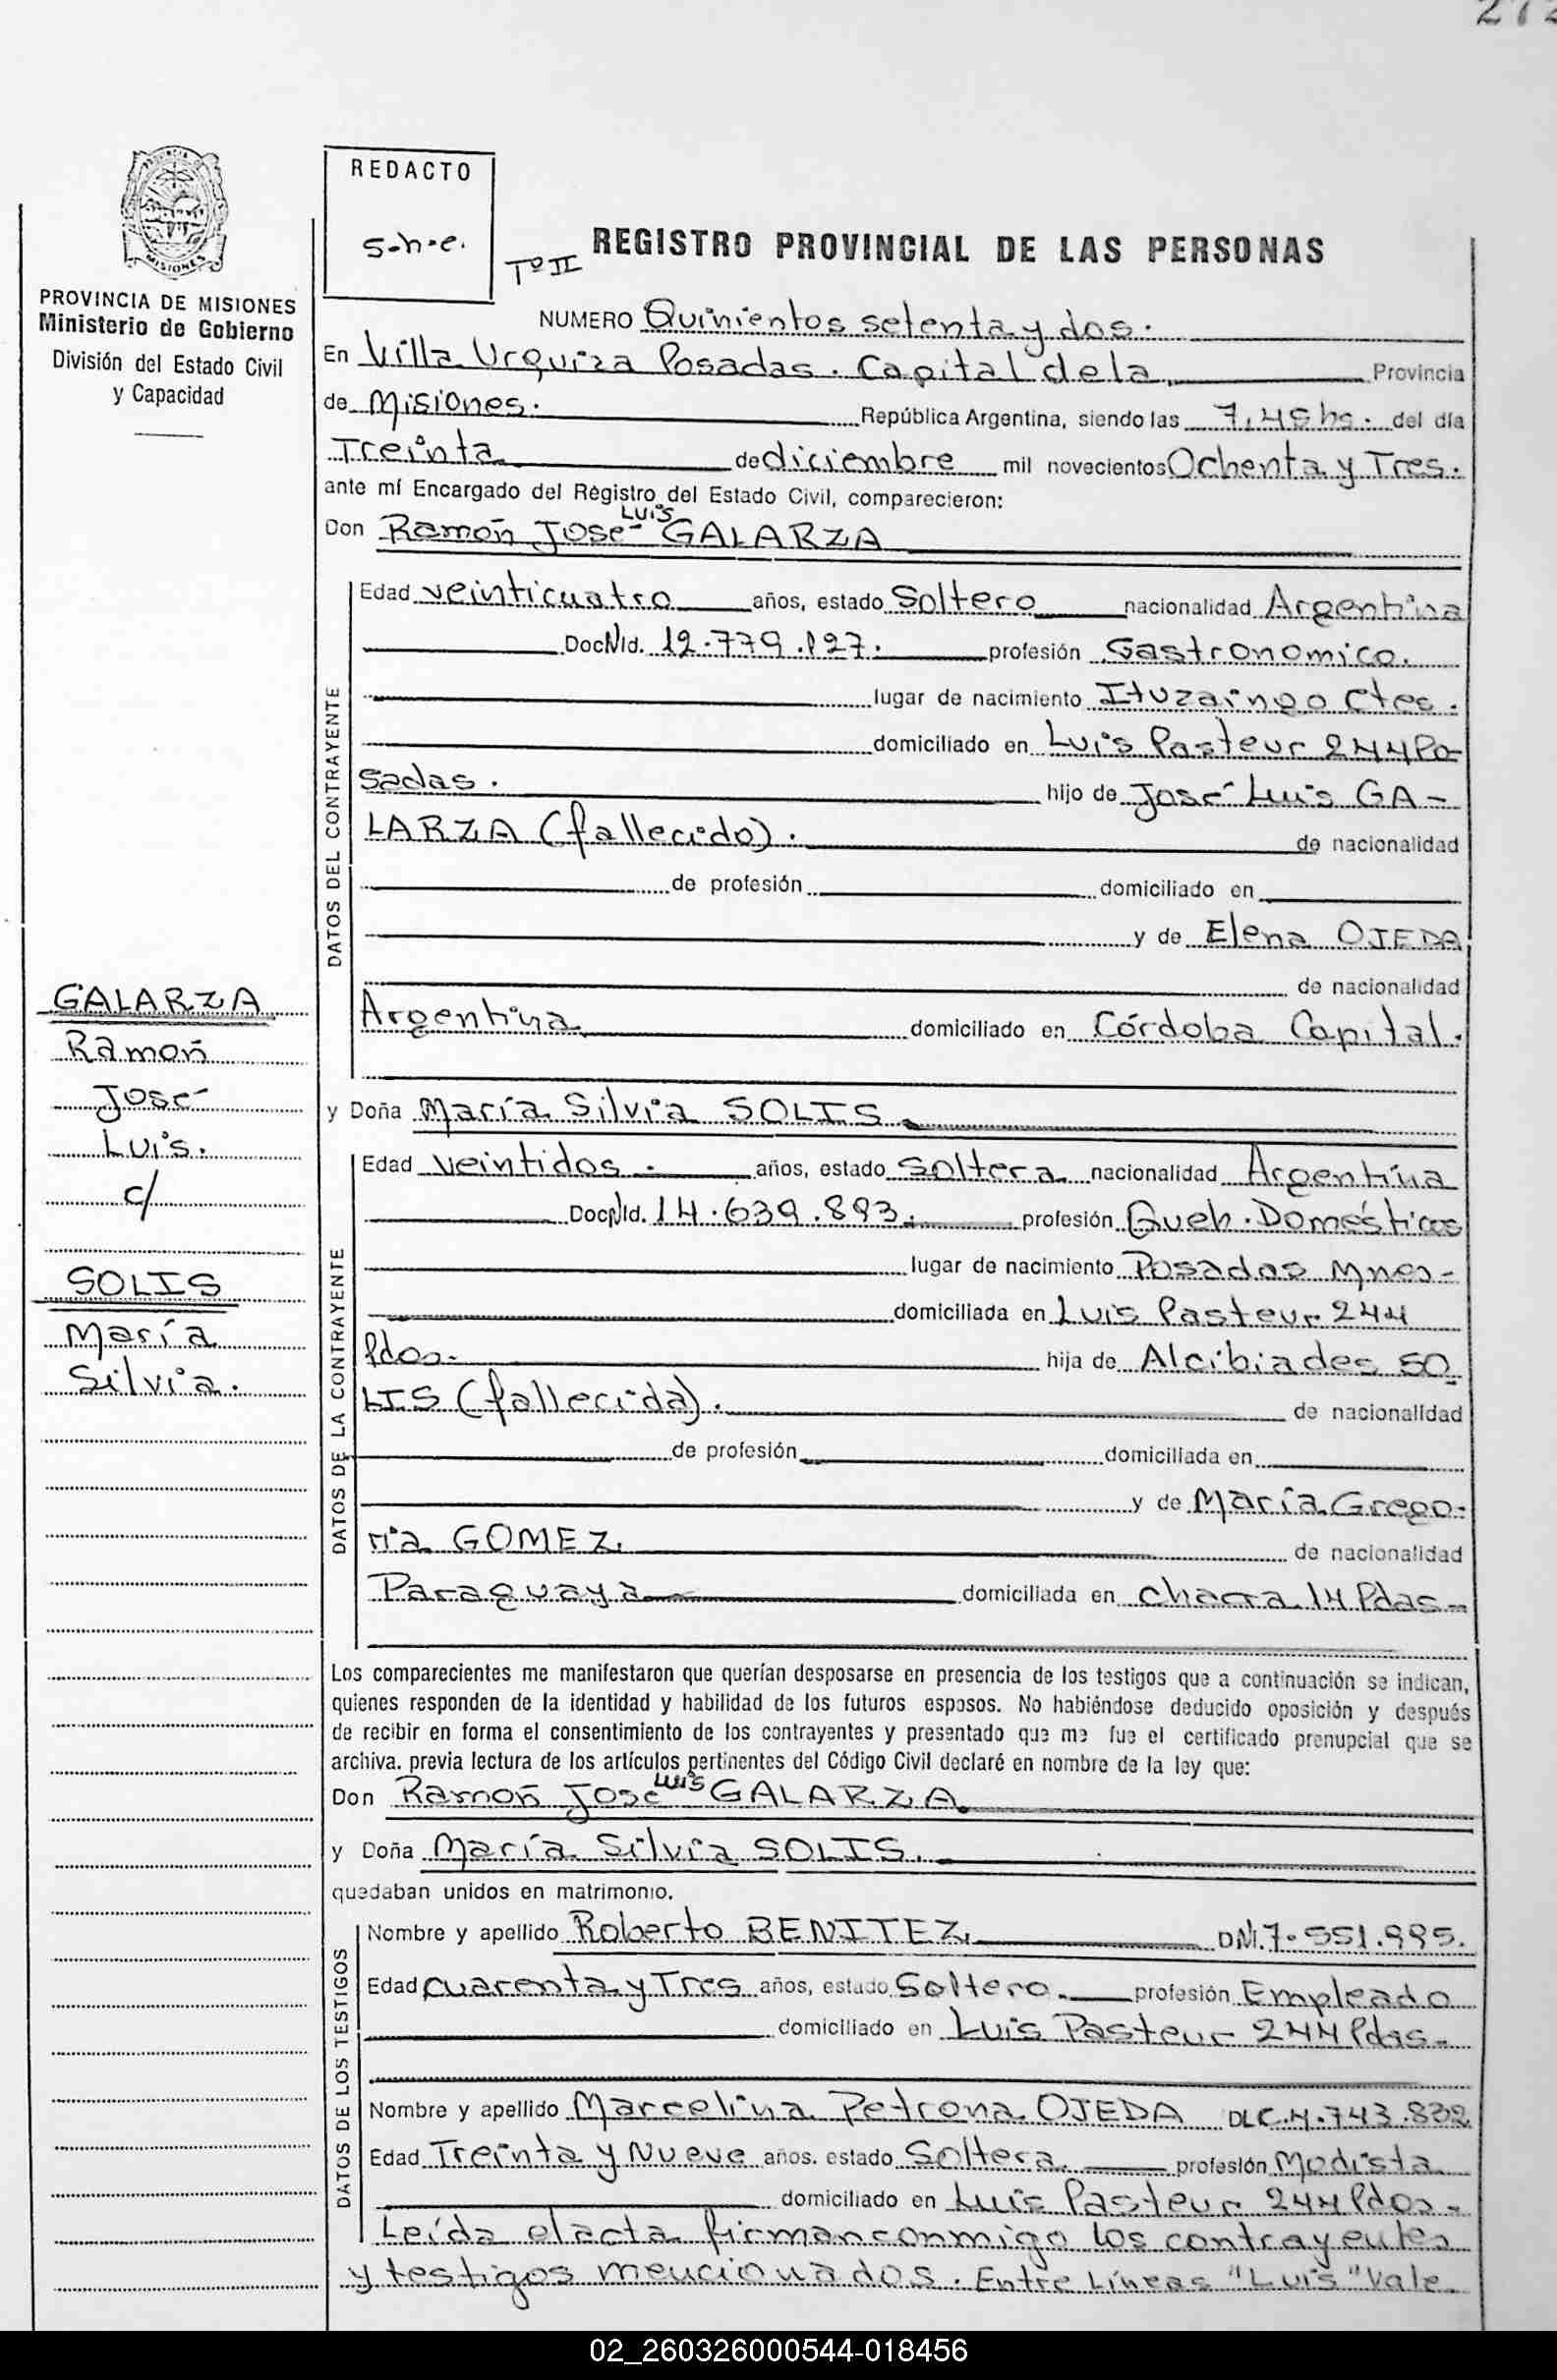 272
REDACTO
S-n-e.
Tº II
REGISTRO PROVINCIAL DE LAS PERSONAS
MISIONES
PROVINCIA DE MISIONES
Ministerio de Gobierno
División del Estado Civil
y Capacidad
NUMERO Quinientos setenta y dos.
En Villa Urquiza Posadas. Capital de la Provincia
de Misiones. República Argentina, siendo las 7,45 hs. del día
Treinta de diciembre mil novecientos Ochenta y Tres.
ante mí Encargado del Registro del Estado Civil, comparecieron:
Luis
Don Ramón José GALARZA
DATOS DEL CONTRAYENTE
Edad veinticuatro años, estado Soltero nacionalidad Argentina
DocNId. 12.779.127. profesión Gastronomico.
lugar de nacimiento Ituzaingo Ctes.
domiciliado en Luis Pasteur 244 Po-
sadas. hijo de José Luis GA-
LARZA (fallecido). de nacionalidad
de profesión domiciliado en
y de Elena OJEDA
de nacionalidad
Argentina domiciliado en Córdoba Capital.
GALARZA
Ramón
José
Luis.
c/
SOLIS
María
Silvia.
y Doña María Silvia SOLIS
DATOS DE LA CONTRAYENTE
Edad veintidos. años, estado Soltera nacionalidad Argentina
DocNId. 14.639.893. profesión Queh. Domésticos
lugar de nacimiento Posadas Mnes-
domiciliada en Luis Pasteur 244
Pdas- hija de Alcibiades SO-
LIS (fallecida). de nacionalidad
de profesión domiciliada en
y de María Grego-
ria GOMEZ. de nacionalidad
Paraguaya domiciliada en chacra 14 Pdas-
Los comparecientes me manifestaron que querían desposarse en presencia de los testigos que a continuación se indican,
quienes responden de la identidad y habilidad de los futuros esposos. No habiéndose deducido oposición y después
de recibir en forma el consentimiento de los contrayentes y presentado que me fue el certificado prenupcial que se
archiva. previa lectura de los artículos pertinentes del Código Civil declaré en nombre de la ley que:
Luis
Don Ramón José GALARZA
y Doña María Silvia SOLIS.
quedaban unidos en matrimonio.
DATOS DE LOS TESTIGOS
Nombre y apellido Roberto BENITEZ. DNI. 7.551.995.
Edad cuarenta y Tres años, estado Soltero. profesión Empleado
domiciliado en Luis Pasteur 244 Pdas-
Nombre y apellido Marcelina Petrona OJEDA DLC. 4.743.832
Edad Treinta y Nueve años. estado Soltera. profesión Modista
domiciliado en Luis Pasteur 244 Pdas-
Leída el acta firman conmigo los contrayentes
y testigos mencionados. Entre Líneas "Luis" Vale.
02_260326000544-018456